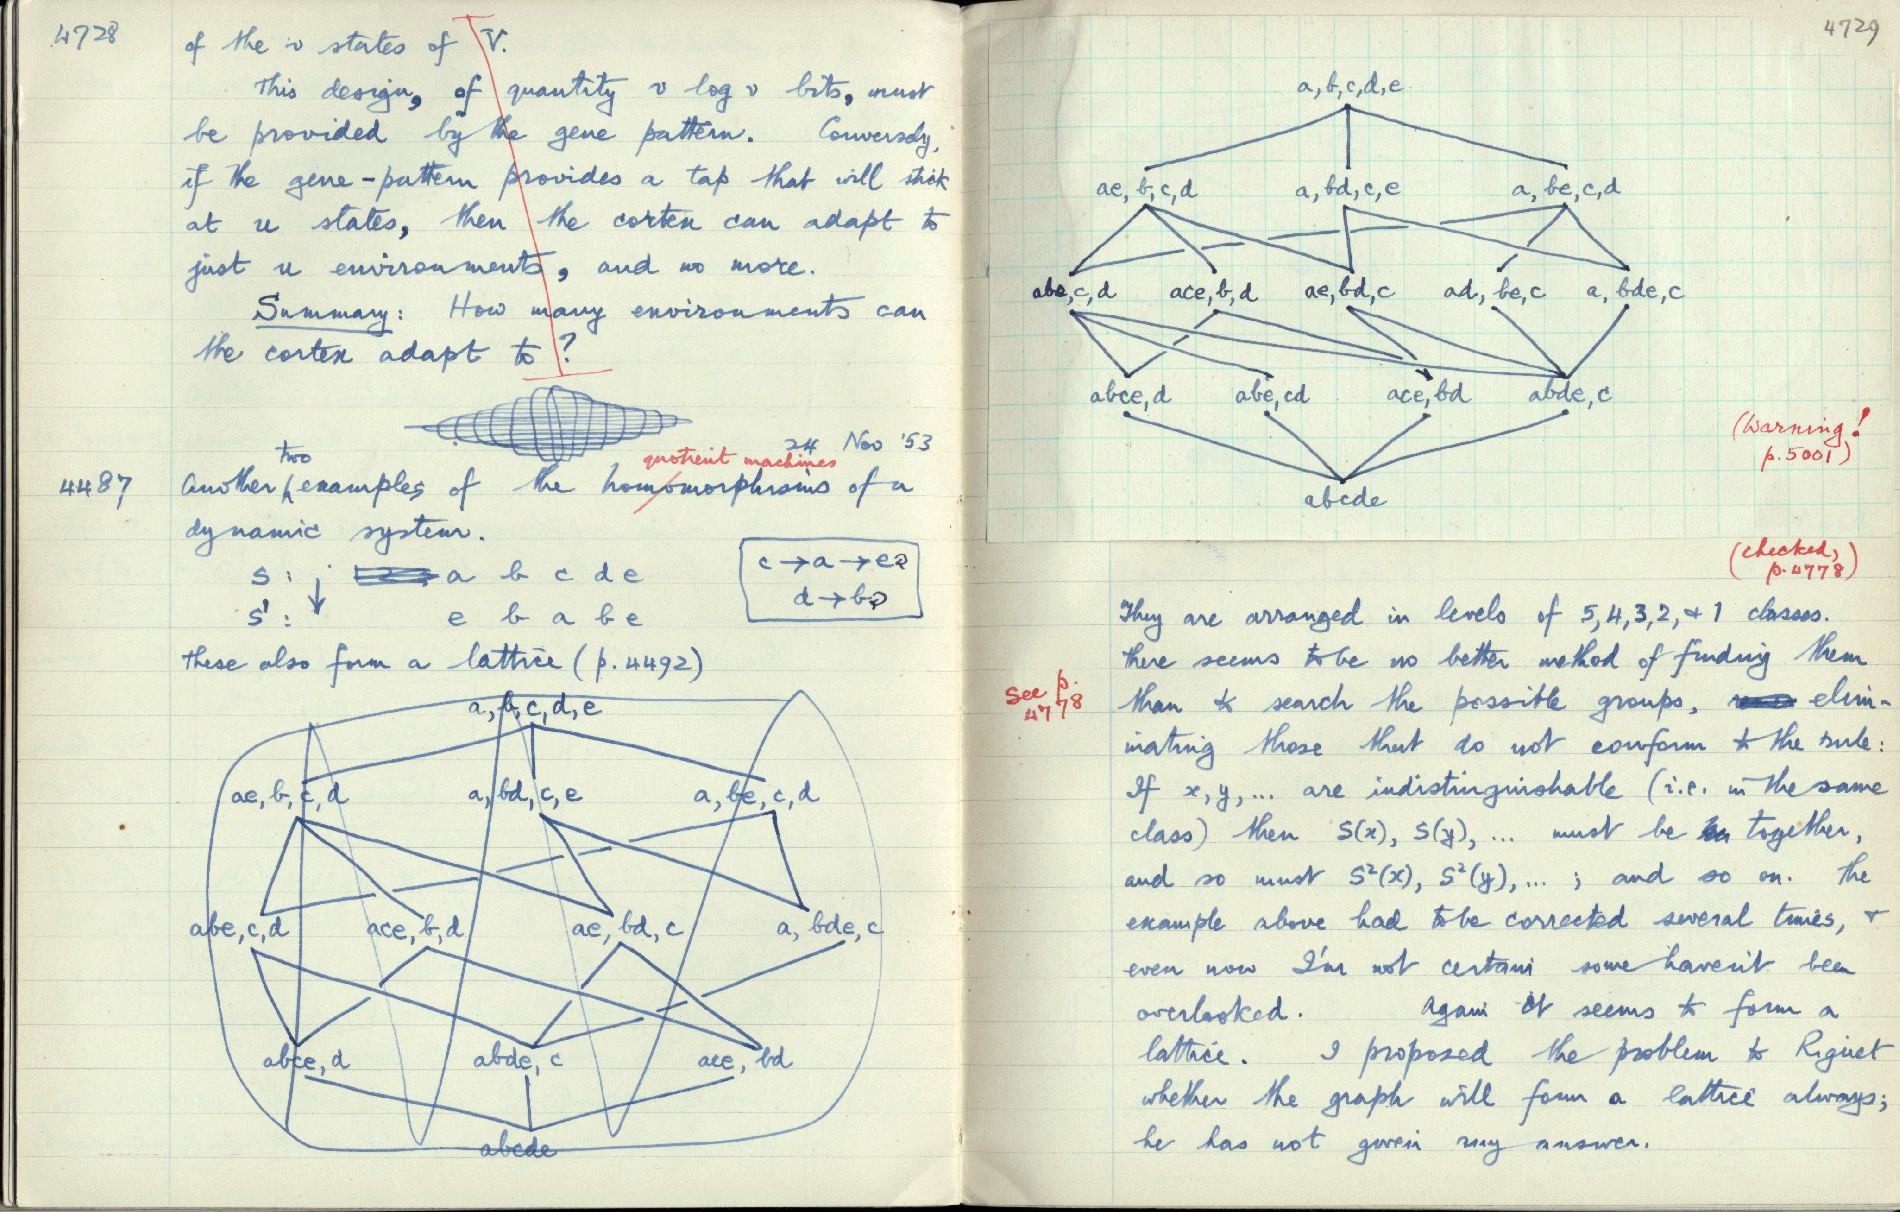 4728
of the v states of V.
This design, of quantity v log v bits, must
be provided by the gene pattern. Conversely,
if the gene-pattern provides a tap that will stick
at u states, then the cortex can adapt to
just u environments, and no more.
Summary: How many environments can
the cortex adapt to?
24 Nov '53
two
quotient machines
4487 Another examples of the homomorphisms of a
dynamic system.
S: ↓ a b c d e
S': e b a b e
c → a → e
d → b
These also form a lattice (p. 4492)
a, b, c, d, e
ae, b, c, d a, bd, c, e a, be, c, d
abe, c, d ace, b, d ae, bd, c a, bde, c
abce, d abde, c ace, bd
abcde
4729
a, b, c, d, e
ae, b, c, d a, bd, c, e a, be, c, d
abe, c, d ace, b, d ae, bd, c ad, be, c a, bde, c
abce, d abe, cd ace, bd abde, c
abcde
(Warning!
p. 5001)
(checked,
p. 4778)
They are arranged in levels of 5, 4, 3, 2, & 1 classes.
There seems to be no better method of finding them
See p.
4778
than to search the possible groups, elim-
inating those that do not conform to the rule:
If x, y, ... are indistinguishable (i.e. in the same
class) then S(x), S(y), ... must be together,
and so must S²(x), S²(y), ... ; and so on. The
example above had to be corrected several times, &
even now I'm not certain some haven't been
overlooked. Again it seems to form a
lattice. I proposed the problem to Riguet
whether the graph will form a lattice always;
he has not given any answer.